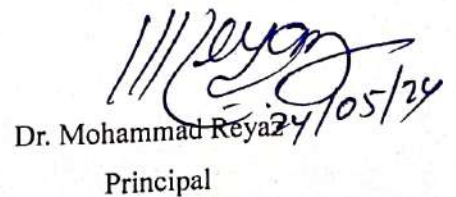 24/05/24
Dr. Mohammad Reyaz
Principal